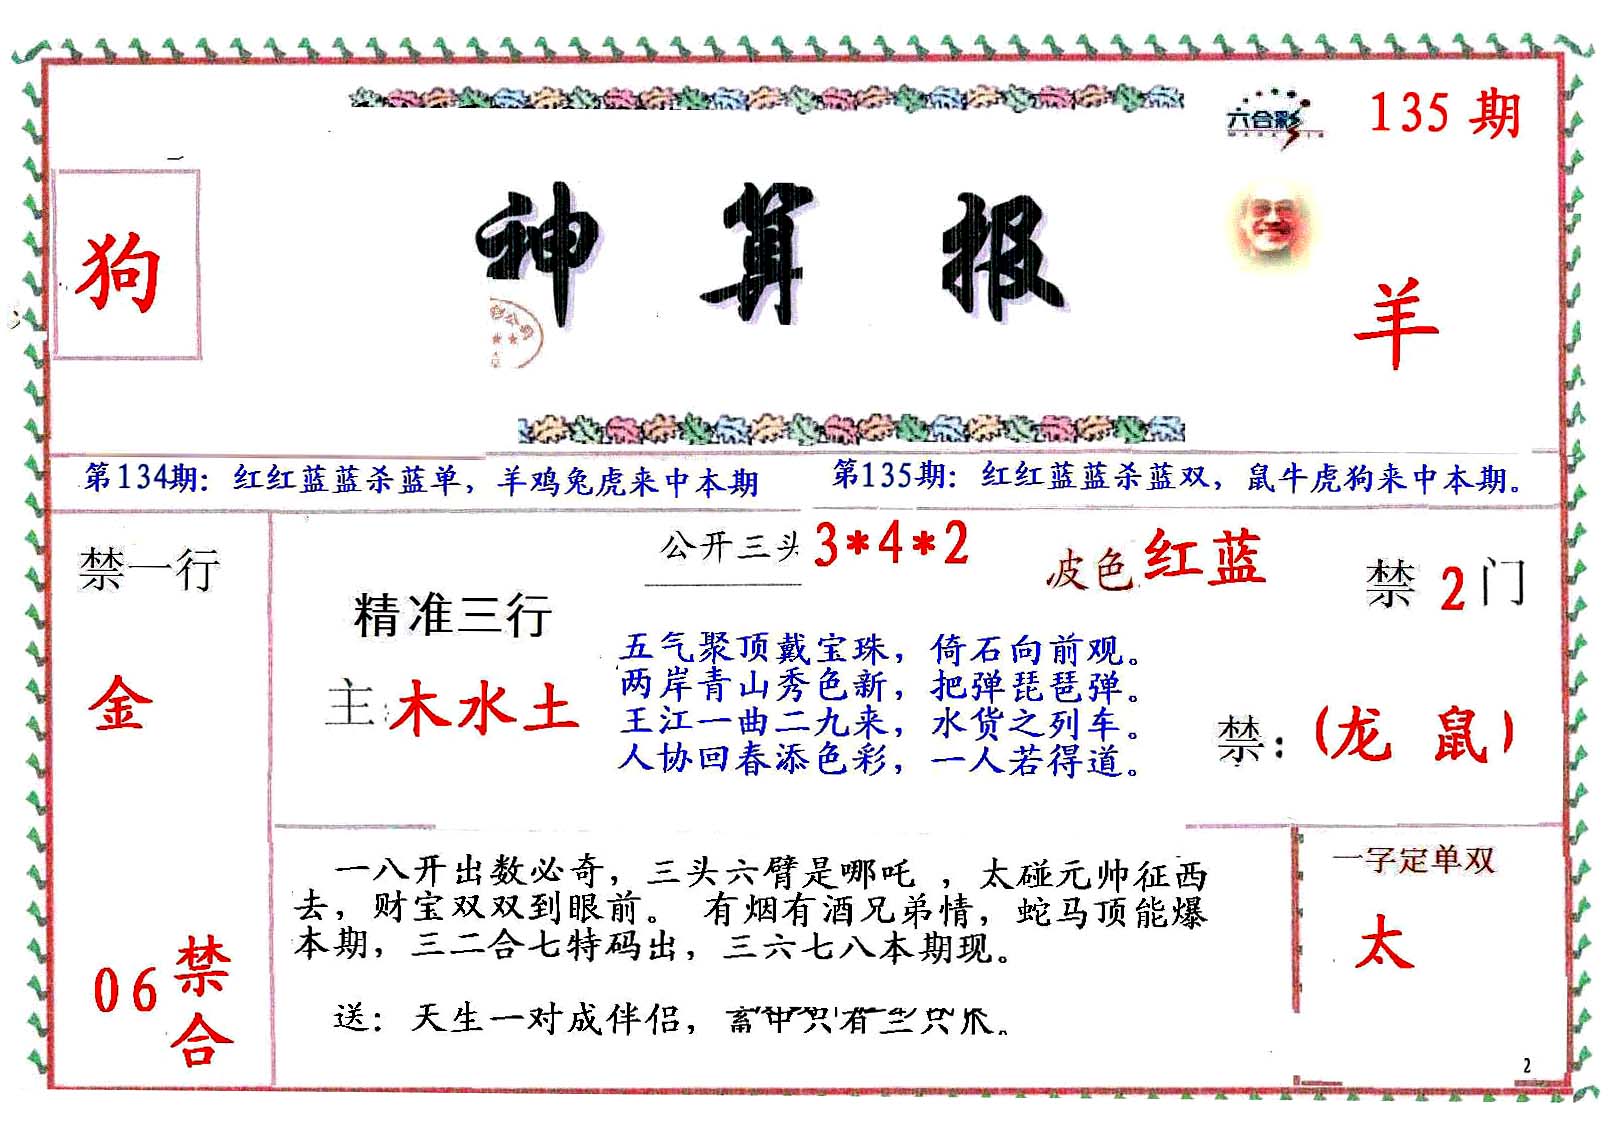 六合彩
135期
狗
神算报
羊
第134期：红红蓝蓝杀蓝单，羊鸡兔虎来中本期
第135期：红红蓝蓝杀蓝双，鼠牛虎狗来中本期。
禁一行
金
06禁合
公开三头3*4*2
波色红蓝
禁2门
精准三行
主:木水土
五气聚顶戴宝珠，倚石向前观。
两岸青山秀色新，把弹琵琶弹。
王江一曲二九来，水货之列车。
人协回春添色彩，一人若得道。
禁：(龙 鼠)
一八开出数必奇，三头六臂是哪吒 ，太碰元帅征西
去，财宝双双到眼前。 有烟有酒兄弟情，蛇马顶能爆
本期，三二合七特码出，三六七八本期现。
送：天生一对成伴侣，畜中只有三只爪。
一字定单双
太
2